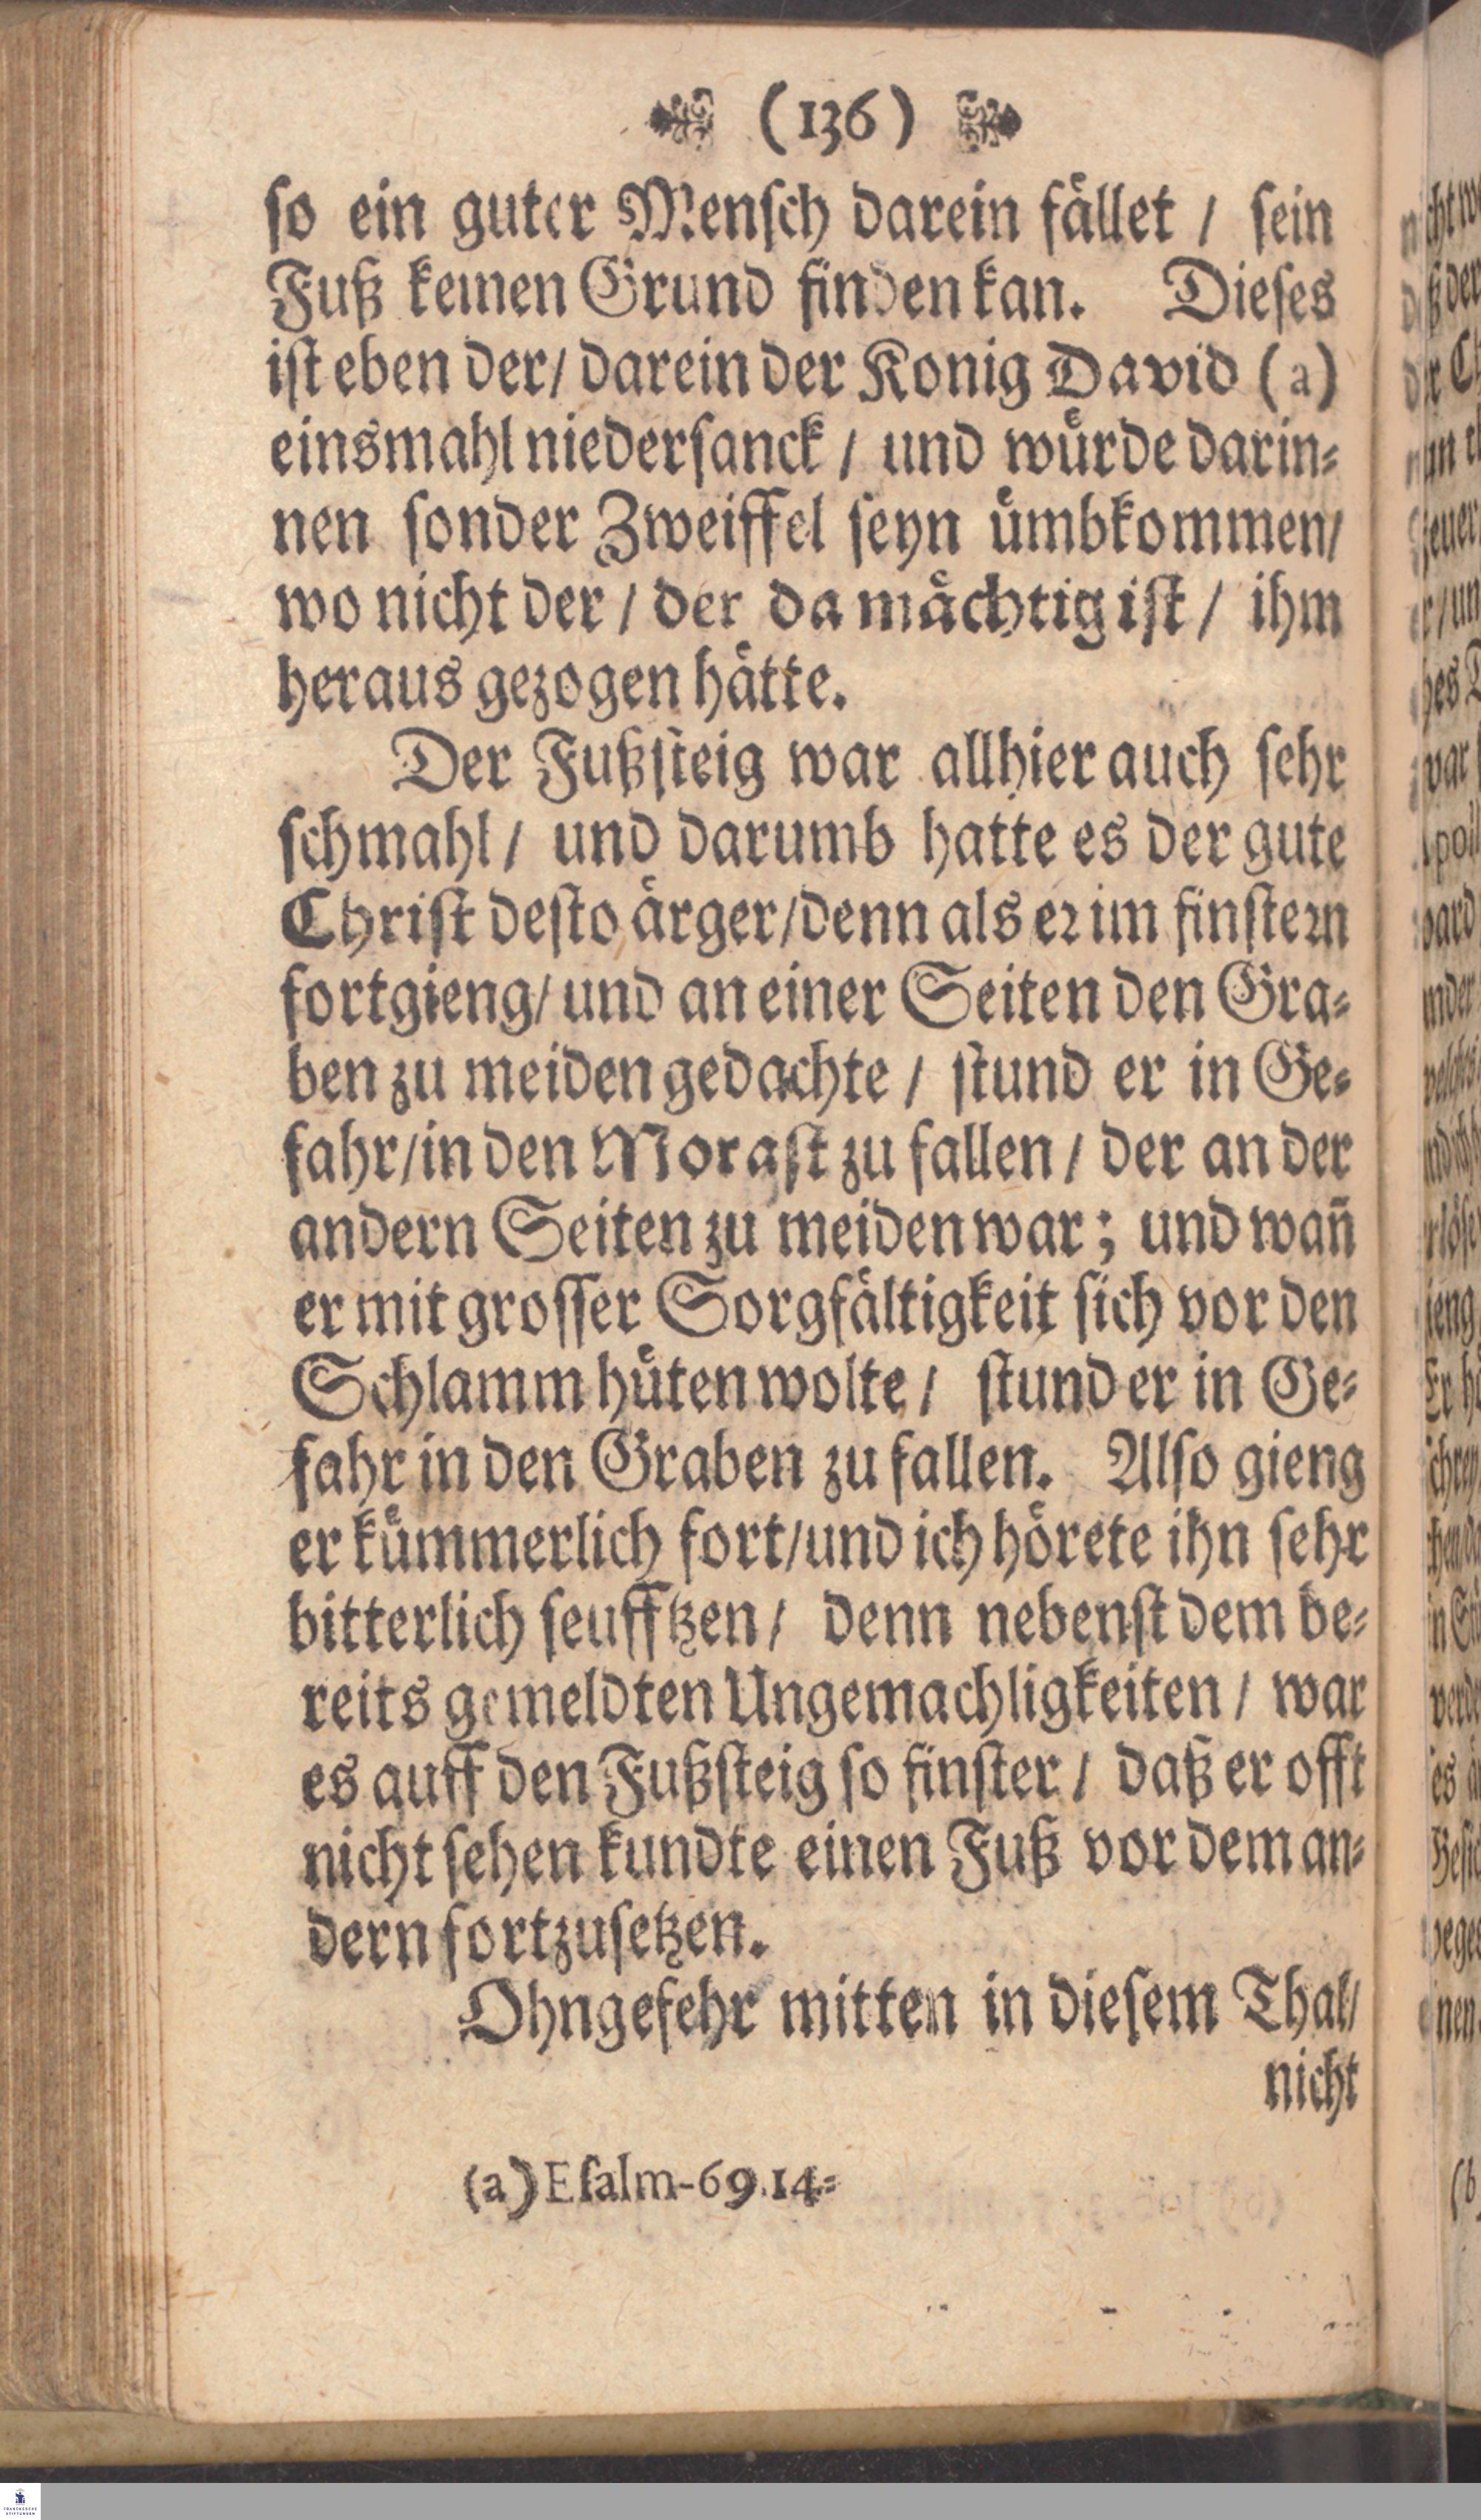 (136)
so ein guter Mensch darein fället / sein
Fuß keinen Grund finden kan. Dieses
ist eben der/ darein der Konig David (a)
einsmahl niedersanck / und würde darin⸗
nen sonder Zweiffel seyn ümbkommen/
wo nicht der / der da mächtig ist / ihm
heraus gezogen hätte.
Der Fußsteig war allhier auch sehr
schmahl / und darumb hatte es der gute
Christ desto ärger/denn als er im finstern
fortgieng/ und an einer Seiten den Gra⸗
ben zu meiden gedachte / stund er in Ge⸗
fahr/in den Morast zu fallen / der an der
andern Seiten zu meiden war; und wañ
er mit grosser Sorgfältigkeit sich vor den
Schlamm hüten wolte / stund er in Ge⸗
fahr in den Graben zu fallen. Also gieng
er kümmerlich fort/und ich hörete ihn sehr
bitterlich seufftzen / denn nebenst dem be⸗
reits gemeldten Ungemachligkeiten / war
es auff den Fußsteig so finster / daß er offt
nicht sehen kundte einen Fuß vor dem an⸗
dern fortzusetzen.
Ohngefehr mitten in diesem Thal/
nicht
(a) Esalm-69.14⸗
FRANCKESCHE
STIFTUNGEN